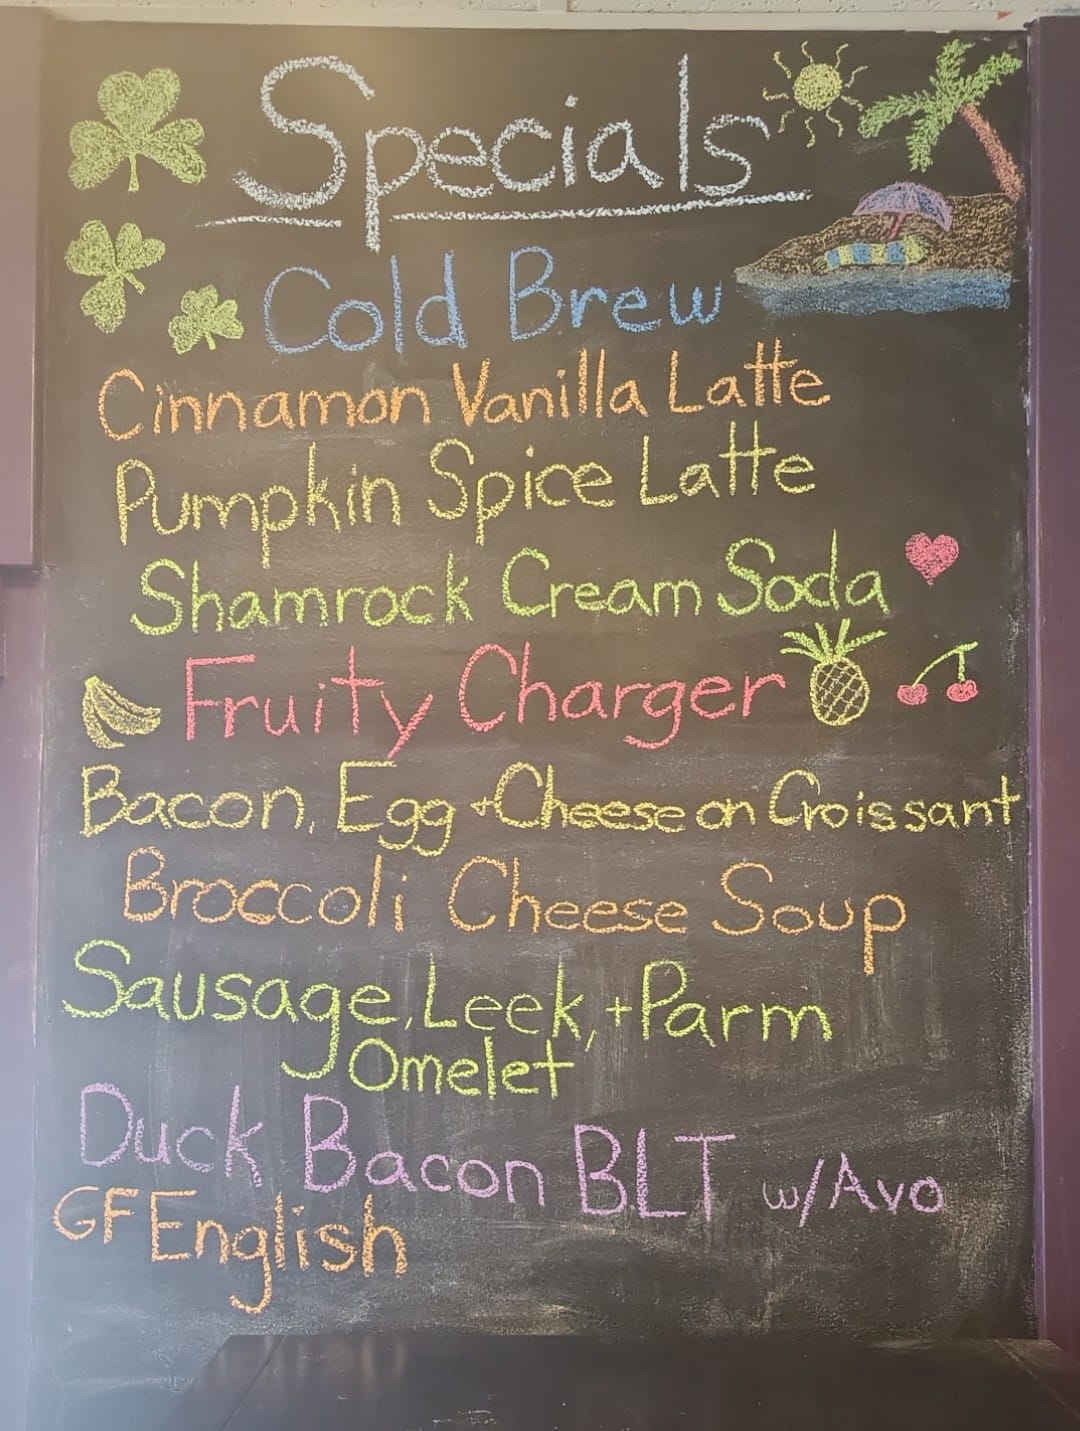 Specials
Cold Brew
Cinnamon Vanilla Latte
Pumpkin Spice Latte
Shamrock Cream Soda
Fruity Charger
Bacon, Egg + Cheese on Croissant
Broccoli Cheese Soup
Sausage, Leek, + Parm
Omelet
Duck Bacon BLT w/Avo
GF English